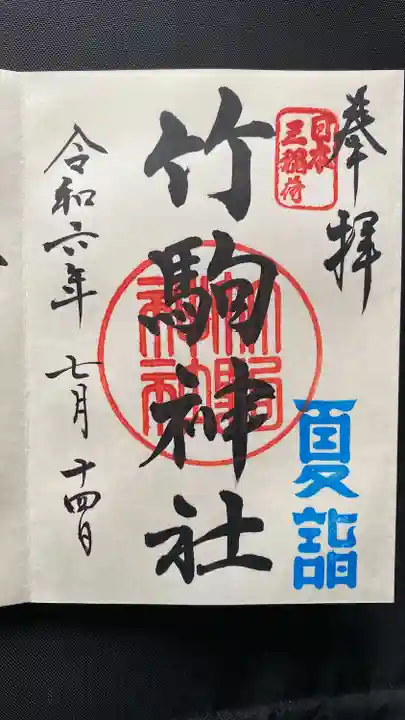 奉拝
日本
三稲荷
夏詣
竹駒神社
竹駒
神社
令和六年 七月 十四日